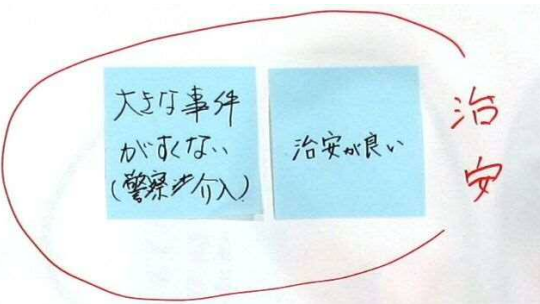 大きな事件
がすくない
(警察が介入)
治安が良い
治安